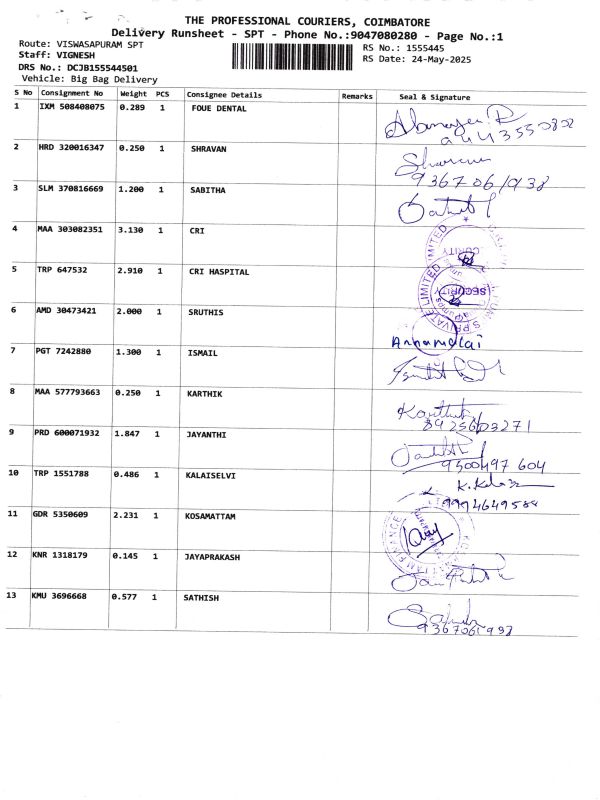 THE PROFESSIONAL COURIERS, COIMBATORE
Delivery Runsheet - SPT - Phone No.:9047080280 - Page No.:1
Route: VISWASAPURAM SPT
RS No.: 1555445
Staff: VIGNESH
RS Date: 24-May-2025
DRS No.: DCJB155544501
Vehicle: Big Bag Delivery
S No Consignment No Weight PCS Consignee Details Remarks Seal & Signature
1 IXM 508408075 0.289 1 FOUE DENTAL
2 HRD 320016347 0.250 1 SHRAVAN
3 SLM 370816669 1.200 1 SABITHA
4 MAA 303082351 3.130 1 CRI
5 TRP 647532 2.910 1 CRI HASPITAL
SECURITY
6 AMD 30473421 2.000 1 SRUTHIS
Annamalai
7 PGT 7242880 1.300 1 ISMAIL
8 MAA 577793663 0.250 1 KARTHIK
Karthik
8925603271
9 PRD 600071932 1.847 1 JAYANTHI
9500497 604
10 TRP 1551788 0.486 1 KALAISELVI
K. Kalai
9994649584
11 GDR 5350609 2.231 1 KOSAMATTAM
12 KNR 1318179 0.145 1 JAYAPRAKASH
13 KMU 3696668 0.577 1 SATHISH